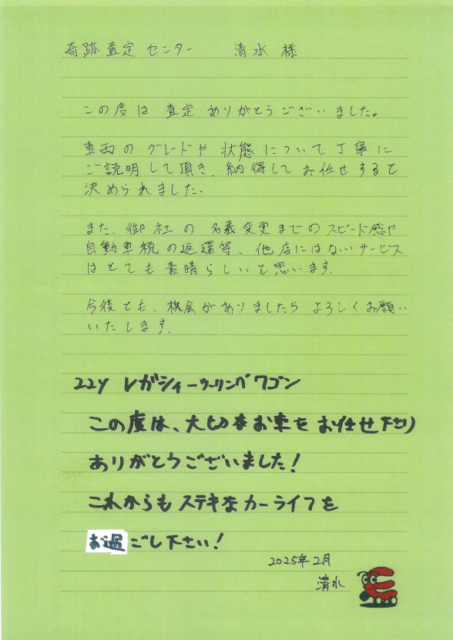 奇跡査定センター 清水様
この度は査定ありがとうございました。
車両のグレードや状態について丁寧に
ご説明して頂き、納得してお任せすると
決められました。
また、御社の名義変更までのスピード感や
自動車税の返還等、他店にはないサービス
はとても素晴らしいと思います。
今後とも、機会がありましたらよろしくお願い
いたします。
22y レガシィツーリングワゴン
この度は、大切なお車をお任せ下り
ありがとうございました！
これからもステキなカーライフを
お過ごし下さい！
2025年2月
清水